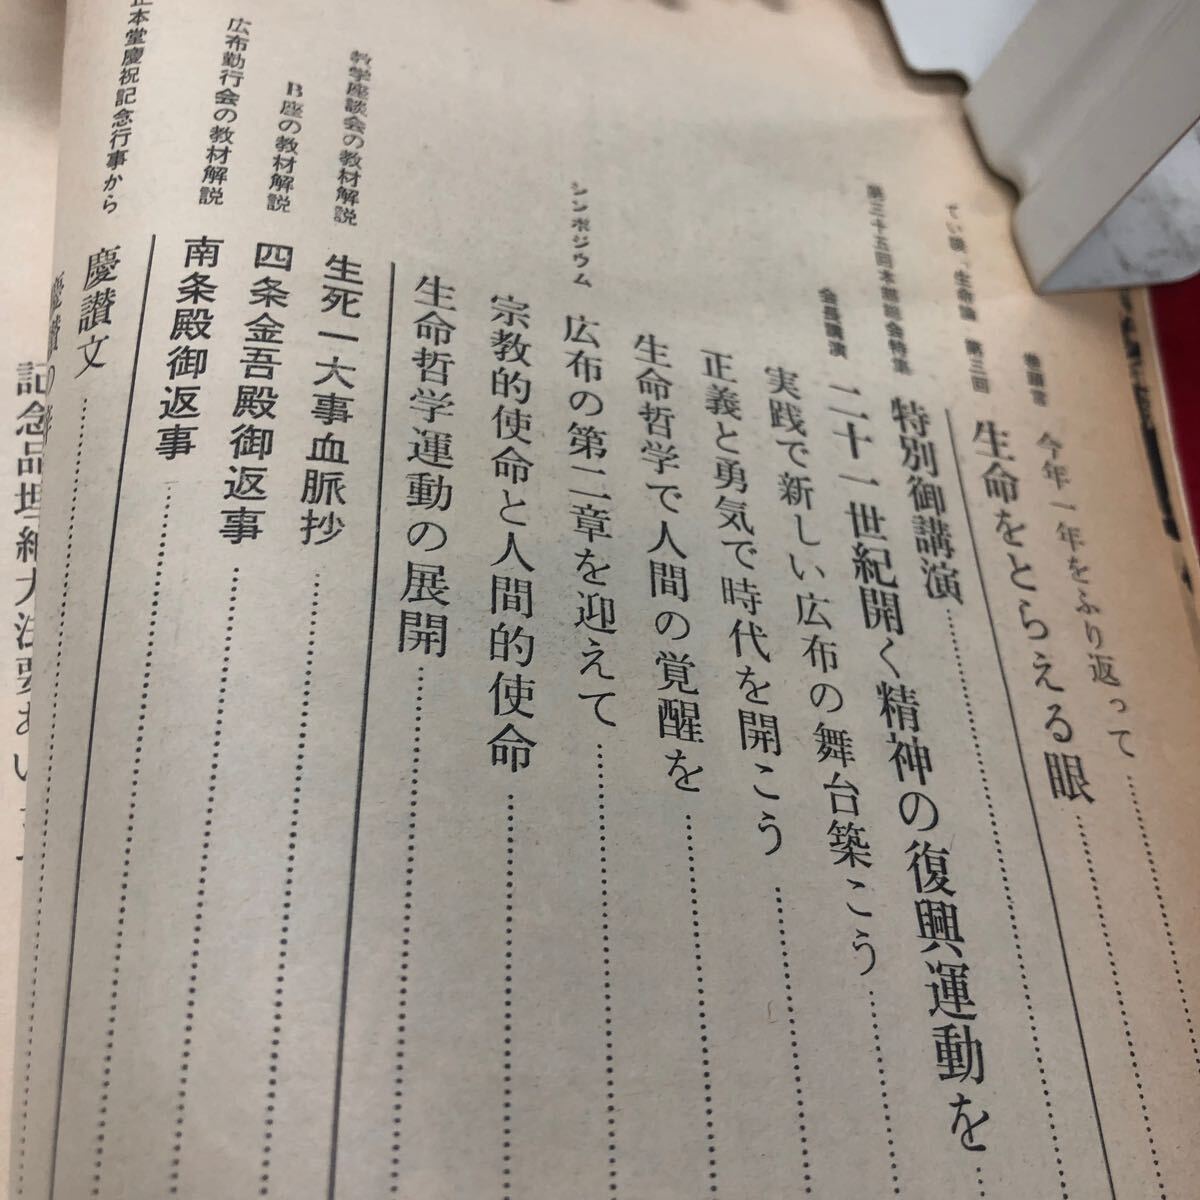 巻頭言 今年一年をふり返って
てい談、生命論 第三回 生命をとらえる眼
第三十五回本部総会特集 特別御講演
会長講演 二十一世紀開く精神の復興運動を
実践で新しい広布の舞台築こう
正義と勇気で時代を開こう
生命哲学で人間の覚醒を
シンポジウム 広布の第二章を迎えて
宗教的使命と人間的使命
生命哲学運動の展開
教学座談会の教材解説 生死一大事血脈抄
B座の教材解説 四条金吾殿御返事
広布勤行会の教材解説 南条殿御返事
正本堂慶祝記念行事から 慶讃文
慶讃の
記念品埋納大法要あいさつ